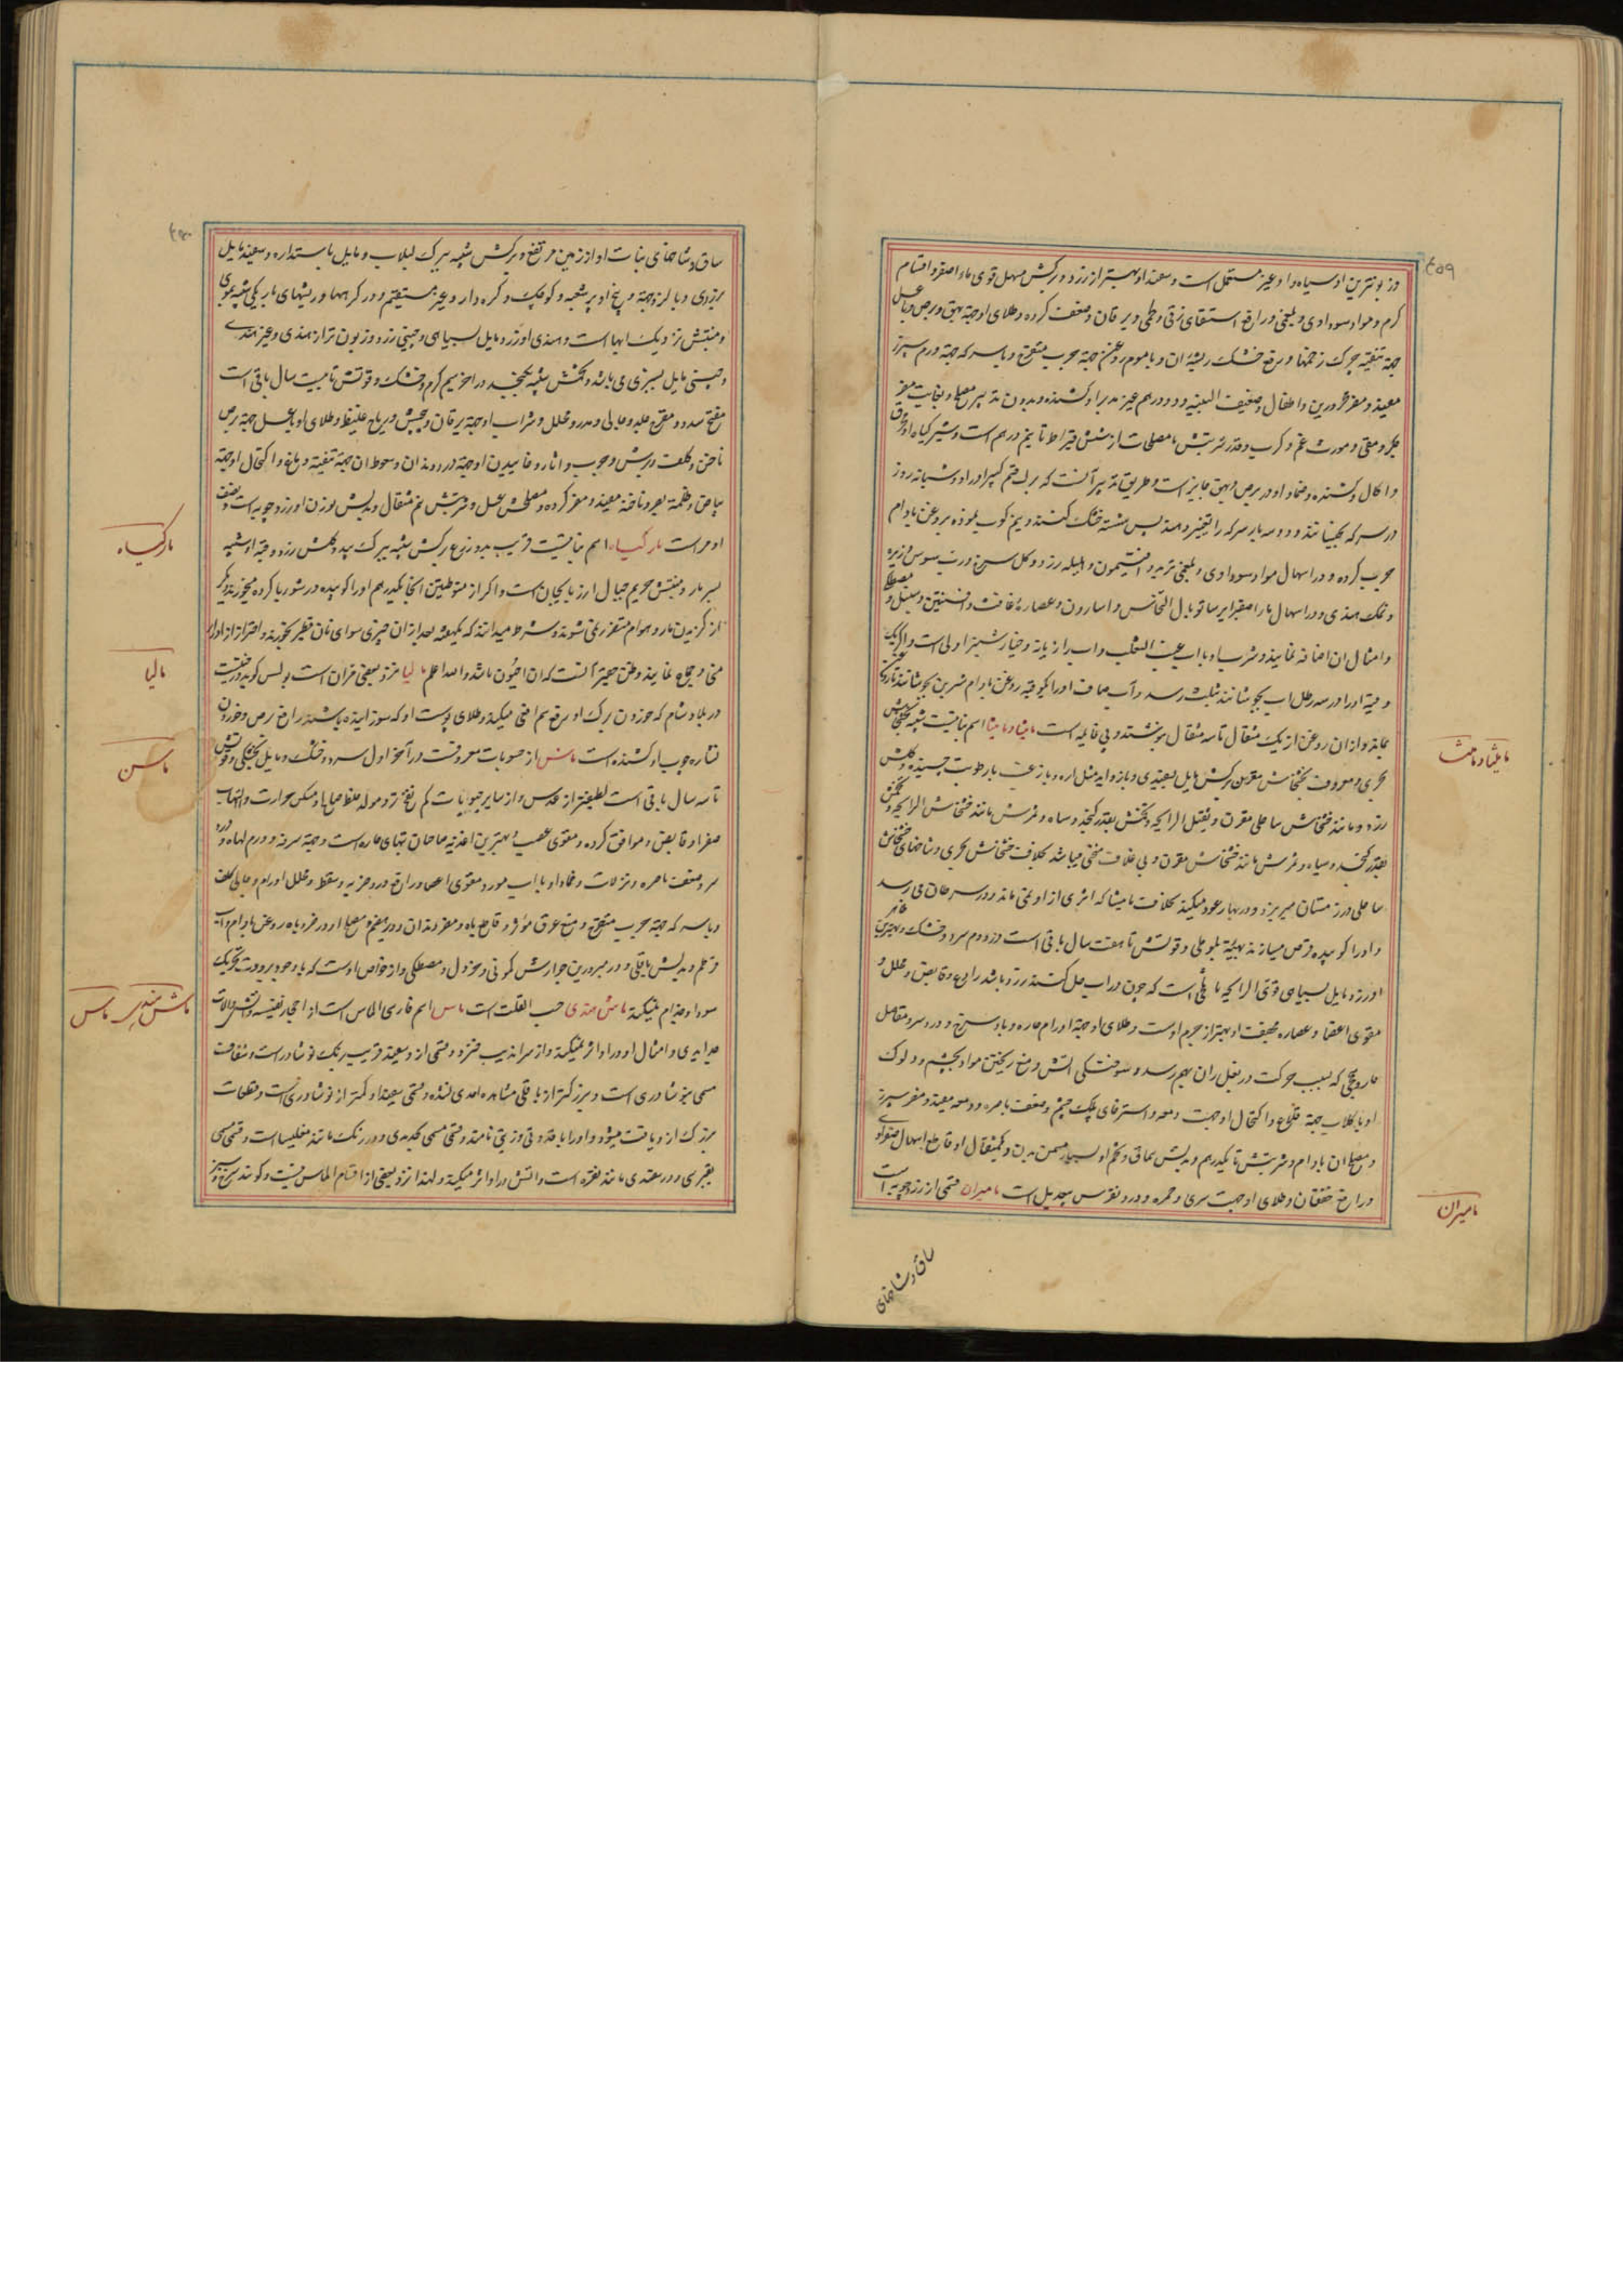 ۴۵۹
و زبونترین او سیاه و او غیر مستعمل است و سفید او بهتر از زرد و برکش مسهل قوی ماء اصفر و اقسام
کرم و مواد سوداوی و بلغمی و رافع استسقای زقی و طحمی و یرقان و ضعف کرده و طلای او جهة بهق و برص و با عسل
جهة تنقیه چرک زخمها و رفع خشک ریشهٔ ان و با موم روغن جهة جرب متقرح و با سرکه جهة ورم سپرز
مفید و مضر محرورین و اطفال و ضعیف البنیه و دو درهم غیر مدبر او کشنده و بدون تدبیر مصلح و بغایت مضر
جگر و مقی و مورث غم و کرب و قدر شربتش با مصلحات از شش قیراط تا نیم درهم است و شیر گیاه او محرق
و اکال و کشنده و ضماد او در برص و بهق جایز است و طریق تدبیر آنست که برک قسم کبیر او را دو شبانه روز
در سرکه بخیسانند و دو سه بار سرکه را تغییر دهند پس شسته خشک کنند و نیم کوب نموده بروغن بادام
چرب کرده و در اسهال مواد سوداوی و بلغمی تربد و افتیمون و هلیله زرد و کل سرخ و رب سوس و زیره
و نمک هندی و در اسهال ماء اصفر ایرسا و توبال النحاس و اسارون و عصارهٔ غافث و افسنتین و سنبل و مصطکی
و امثال ان اضافه نمایند و شرب او با اب عنب الثعلب و اب رازیانه و خیارشنبر اولی است و اکر یک
وقیه او را در سه رطل اب بجوشانند تا بثلث رسد و آب صاف او را با یکوقیه روغن بادام شیرین بجوشانند تا روغن
بماند و از ان روغن از یک مثقال تا سه مثقال بنوشند بی غایله است مامیثا و مامیثا اسم نباتیست شبیه بخشخاش
بحری و معروف بخشخاش مقرن برکش مایل بسفیدی و با زوایه مثل اره و با زغب با رطوبت چسبنده و کلش
زرد و مانند خشخاش ساحلی مقرن و ثقیل الرایحه و تخمش بقدر کنجد و سیاه و ثمرش مانند خشخاش
بقدر کنجد و سیاه و ثمرش مانند خشخاش مقرن و بی غلاف منحنی میباشد بخلاف خشخاش بحری و شاخهای خشخاش
ساحلی در زمستان میریزد و در بهار عود میکند بخلاف مامیثا که اثری از او نمی ماند و در سرطان می رسد
و او را کوبیده قرص میسازند بهیئة بلوطی و قوتش تا هفت سال باقی است در دوم سرد و خشک و بهترین
او زرد مایل بسیاهی قوی الرایحه مایلی است که چون در اب حل کنند زرد باشد رادع و قابض و محلل و
مقوی اعضا و عصاره مجفف او بهتر از جرم اوست و طلای او جهة اورام حاره و باد سرخ و درد سر و مفاصل
حار و نحوی که بسبب حرکت در بغل ران بهم رسد و سوختکی اتش و منع ریختن مواد بچشم و دلوک
او با کلاب جهة قلاع و اکتحال او جهت دمعه و استرخای پلک چشم و ضعف باصره و دمعه مفید و مضر سپرز
و مصلح ان بادام و شربتش تا یکدرهم و بدلش سماق و تخم او بسیار مسمن بدن و یکمثقال او قاطع اسهال صفراوی
و رافع خفقان و طلای او جهت سری و حمره و درد نقرس بیعدیل است مامیران قسمی از زردچوبه است
مامیثا و مامیثا
مامیران
ساق و شاخهای
۴۶۰
ساق و شاخهای نبات او از زمین مرتفع و برکش شبیه ببرک لبلاب و مایل باستداره و سفید مایل
بزردی و با لزوجة و بیخ او پر شعبه و کوچک و کره دار و غیر مستقیم و در کرهها و ریشهای باریکی شبیه بموی
و منبتش نزدیک ابها است و هندی او زرد مایل بسیاهی و چینی زرد و زبون تر از هندی و غیر هندی
و چینی مایل بسبزی می باشد و تخمش شبیه بکنجد در اخر سیم کرم و خشک و قوتش تا بیست سال باقی است
مفتح سدد و مقرح جلد و جالی و مدر و محلل و شراب او جهة یرقان و پیچش و ریاح غلیظ و طلای او با عسل جهة برص
ناخن و کلف و برش و جرب و اثار و خاییدن او جهة درد دندان و سعوط ان جهة تنقیه دماغ و اکتحال او جهة
بیاض و ظلمة بصر و ناخنه مفید و مضر کرده و مصلحش عسل و شربتش نیم مثقال و بدلش بوزن او زردچوبه است و نصف
او مر است مارکیاه اسم نباتیست قریب بدو زرع برکش شبیه ببرک بید و کلش زرد و قبه او شبیه
بسر مار و منبتش حریم جبال ارزبایجان است و اکر از متوطنین انجا یکدرهم او را کوبیده در شوربا کرده میخورند دیگر
از کزیدن مار و هوام متضرر نمی شوند و شرط میدانند که یکهفته بعد از ان چیزی سوای نان فطیر نخورند و احتراز از ادرار
منی و جماع نمایند و ظن حقیر آنست که ان اخیون باشد و الله اعلم مالیا نزد بعضی مران است و پولس کوید درختیست
در بلاد شام که خوردن برک او رفع سم افعی میکند و طلای پوست او که سوزانیده باشند رافع برص و خوردن
نشاره چوب او کشنده است ماش از حبوبات معروفست در آخر اول سرد و خشک و مایل بخشکی و قوتش
تا سه سال باقی است لطیفتر از عدس و از سایر حبوبات کم نفخ تر و مولد خلط صالح و مسکن حرارت و التهاب
صفرا و قابض و موافق کرده و مقوی عصب و بهترین اغذیه صاحبان تبهای حاره است و جهة سرفه و ورم لهاة و درد
سر و ضعف باصره و نزلات و ضماد او با اب مورد مقوی اعصا و رافع درد ضربه و سقطه و محلل اورام و جالی کلف
و با سرکه جهة جرب متقرح و منع عرق مؤثر و قاطع باه و مضر دندان و دیر هضم و مصلح او در غیر باه روغن بادام و اب
قرطم و بدلش باقلی و در مبرودین جوارش کمونی و خردل و مصطکی و از خواص اوست که با وجود برودت تحریک
سودا و جذام نمیکند ماش هندی حب القلت است ماس اسم فارسی الماس است از احجار نفیسه و آتش و آلات
حدایدی و امثال او در او اثر نمیکند و از سراندیب خیزد و قسمی از و سفید قریب برنک نوشادر است و شفاف
مسمی بنوشادری است و بزرکتر از باقلی مشاهده احدی نشده و قسمی سفید او کمتر از نوشادری است و قطعات
بزرک از و یافت میشود و او را ماقدونی و زیتی نامند و قسمی مسمی بحدیدی و در رنک مانند مغلیسا است و قسمی مسمی
بقبرسی و در سفیدی مانند نقره است و اتش در او اثر میکند و لهذا نزد بعضی از اقسام الماس نیست و کویند سرخ و سبز
مارکیاه
مالیا
ماش
ماش هندی ماس